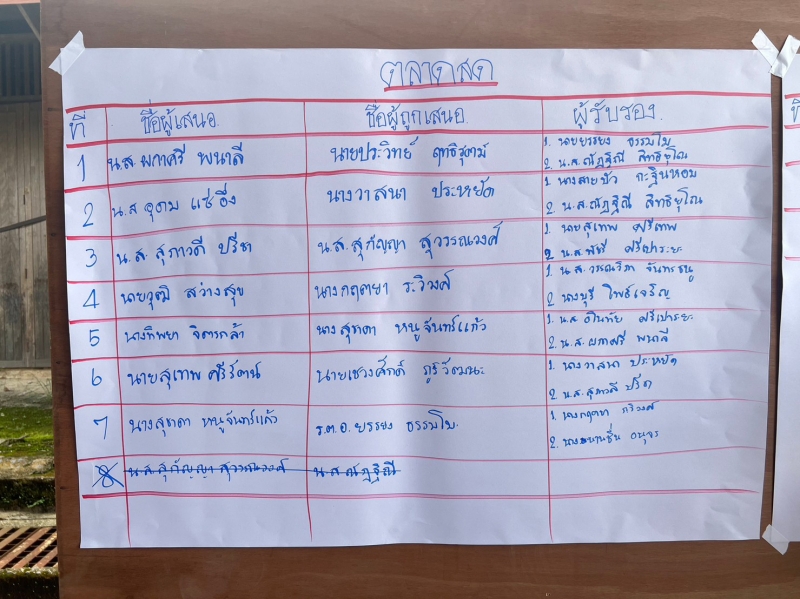 ตลาดสด
ที่ ชื่อผู้เสนอ ชื่อผู้ถูกเสนอ ผู้รับรอง
1 น.ส. ผกาศรี พนาลี นายประวิทย์ 1. นายบรรยง ธรรมโม
2. น.ส. ณัฏฐิณี สิทธิยุโณ
2 น.ส อุดม แซ่อึ่ง นางวาสนา ประหยัด 1 นางสายบัว กะฐินหอม
2. น.ส. ณัฏฐิณี สิทธิยุโณ
3 น.ส. สุภาวดี ปรีชา น.ส. สุกัญญา สุวรรณวงศ์ 1 นายสุเทพ
2 น.ส.
4 นายวุฒิ สว่างสุข นางกฤตยา ระวิวงศ์ 1 น.ส. วรรณวิภา จันทรธนู
2 นางบุรี โพธิ์เจริญ
5 นางทิพยา จิตรกล้า นางสุชาดา หนูจันทร์แก้ว 1. น.ส.
2. น.ส. ผกาศรี พนาลี
6 นายสุเทพ ศรีรัตน์ นายเชวงศักดิ์ ภูริวัฒนะ 1. นางวาสนา ประหยัด
2. น.ส. สุภาวดี ปรีชา
7 นางสุชาดา หนูจันทร์แก้ว ร.ต.อ. บรรยง ธรรมโม 1 นางกฤตยา
2
8 น.ส. สุกัญญา สุวรรณวงศ์ น.ส. ณัฏฐิณี